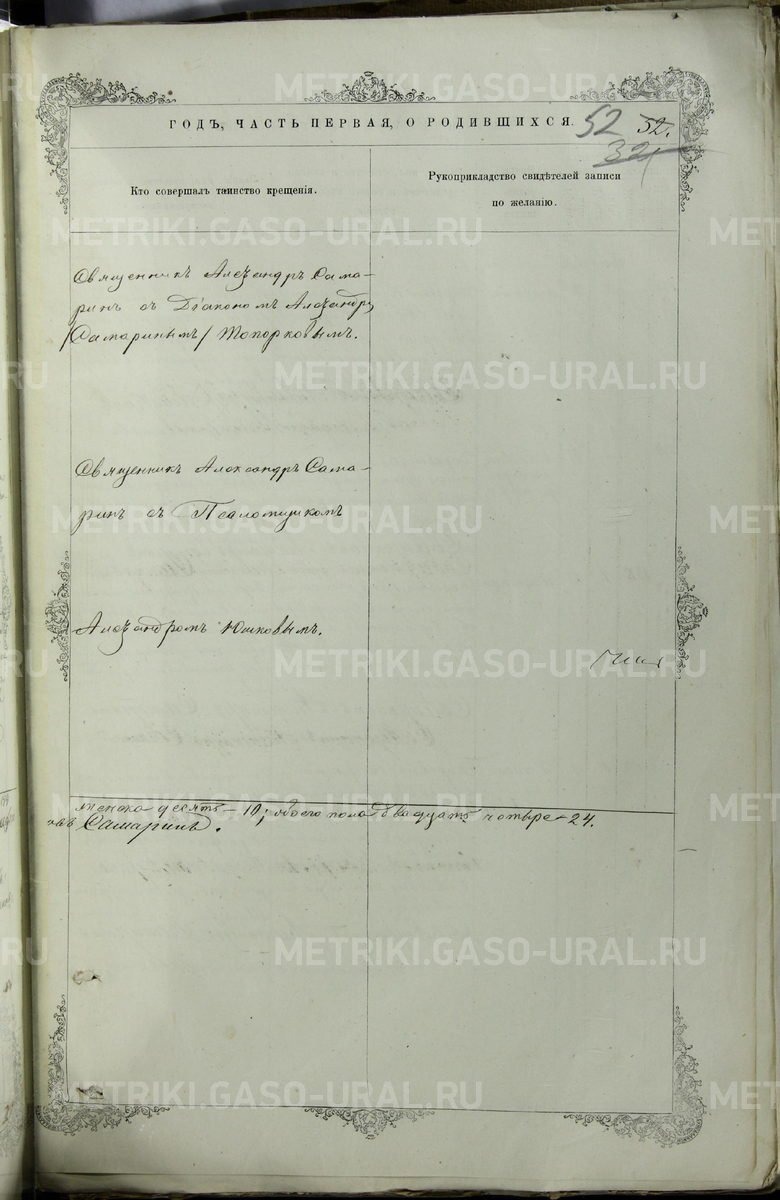 ГОДЪ, ЧАСТЬ ПЕРВАЯ, О РОДИВШИХСЯ.
52 52.
32
Кто совершалъ таинство крещенія.
Рукоприкладство свидѣтелей записи
по желанію.
Священникъ Алеѯандръ Сама-
ринъ съ Діакономъ Алеѯандр
/Самаринымъ/ Топорковымъ.
Священникъ Александръ Сама-
ринъ съ Псаломщикомъ
Алеѯандромъ Юшковымъ.
женска десять - 10; обоего пола двадцать четыре - 24.
Самаринъ.
METRIKI.GASO-URAL.RU